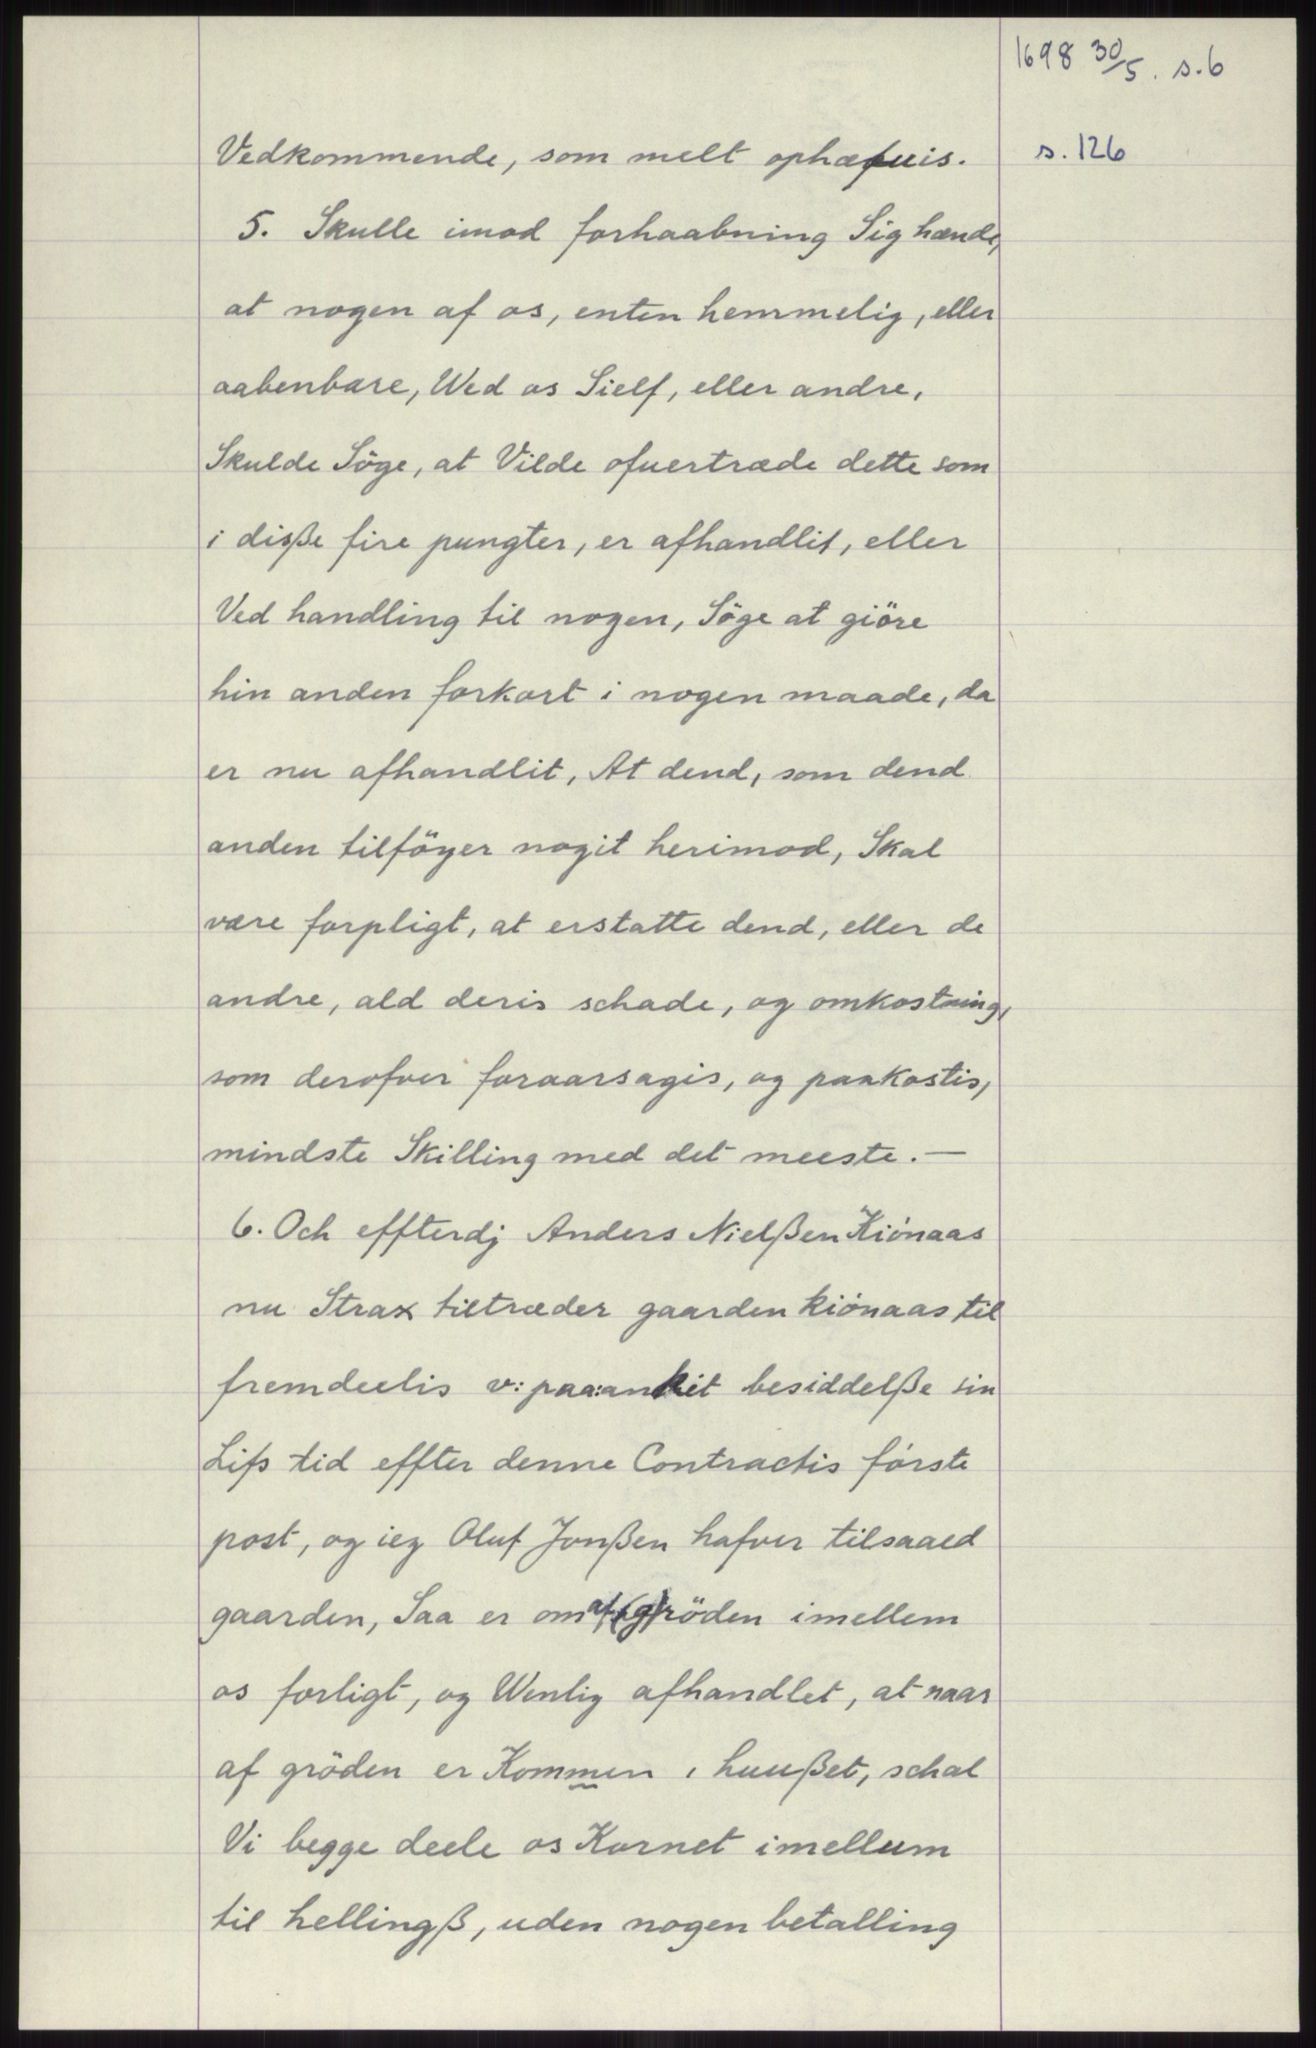 1698 30/5. s.6
s. 126
Vedkommende, som melt ophæfuis.
5. Skulle imod forhaabning Sig hænde,
at nogen af os, enten hemmelig, eller
aabenbare, Wed os Sielf, eller andre,
Skulde Söge, at Vilde ofuertræde dette som
i disße fire pungter, er afhandlit, eller
Ved handling til nogen, Söge at giöre
hin anden forkort i nogen maade, da
er nu afhandlit, At dend, som dend
anden tilföyer nogit herimod, Skal
være forpligt, at erstatte dend, eller de
andre, ald deris schade, og omkostning,
som derofver foraarsagis, og paakostis,
mindste Skilling med det meeste.—
6. Och effterdj Anders Nielßen Kiönaas
nu Strax tiltræder gaarden kiönaas til
fremdeelis v: paa:ankit besiddelße sin
Lifs tid effter denne Contractis förste
post, og ieg Oluf Jonßen hafver tilsaaed
gaarden, Saa er om af(g)röden imellem
os forligt, og Wenlig afhandlet, at naar
af gröden er Kommen i huußet, schal
Vi begge deele os Kornet imellum
til hellingß, uden nogen betalling